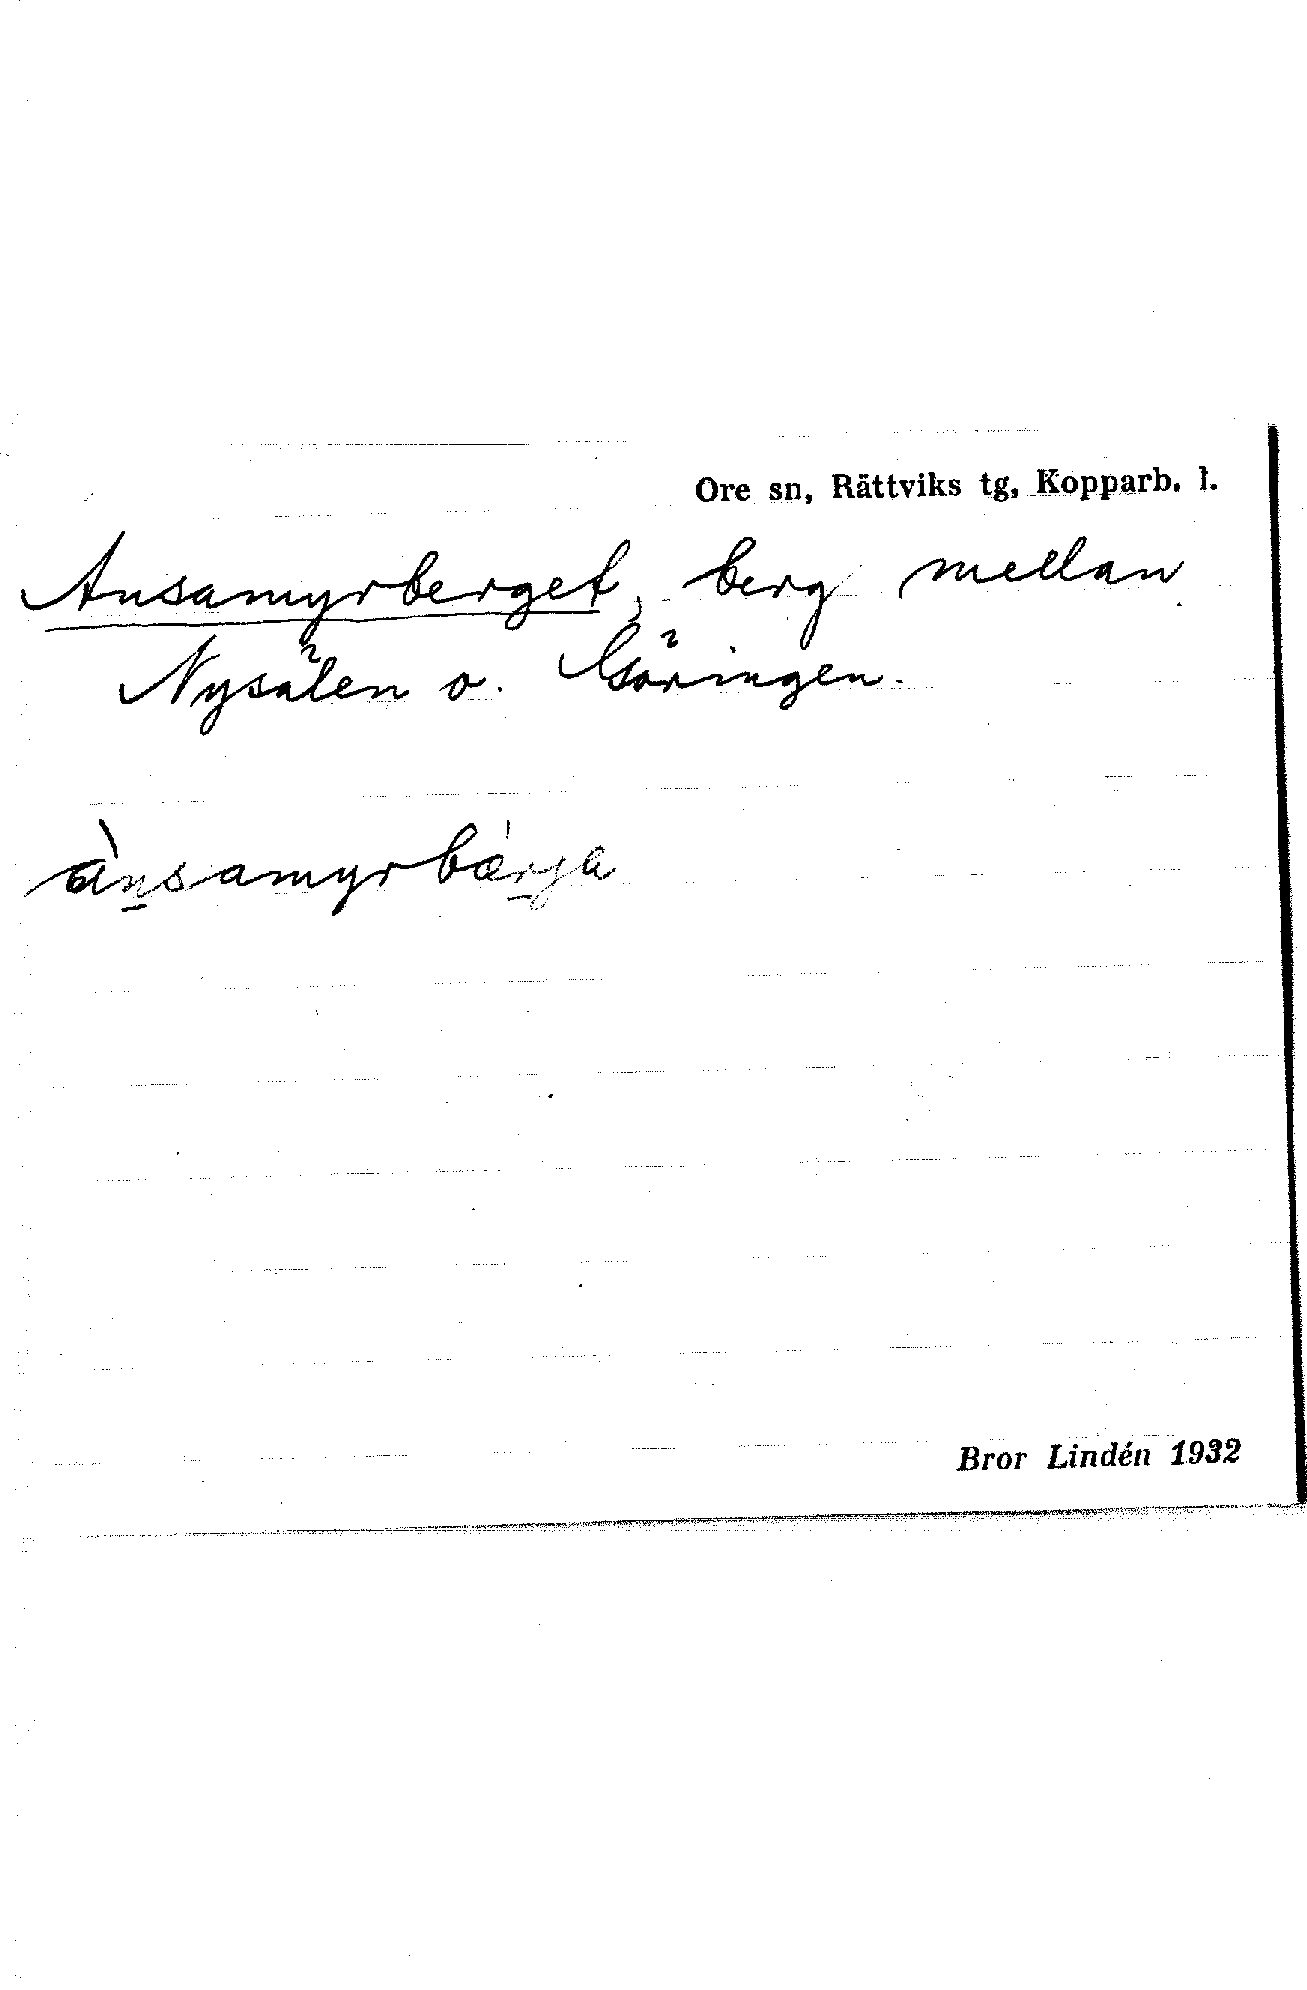 Ore sn, Rättviks tg, Kopparb. l.
Ansamyrberget, berg mellan
Nysälen o. Göringen.
ànsamyrbærja
Bror Lindén 1932